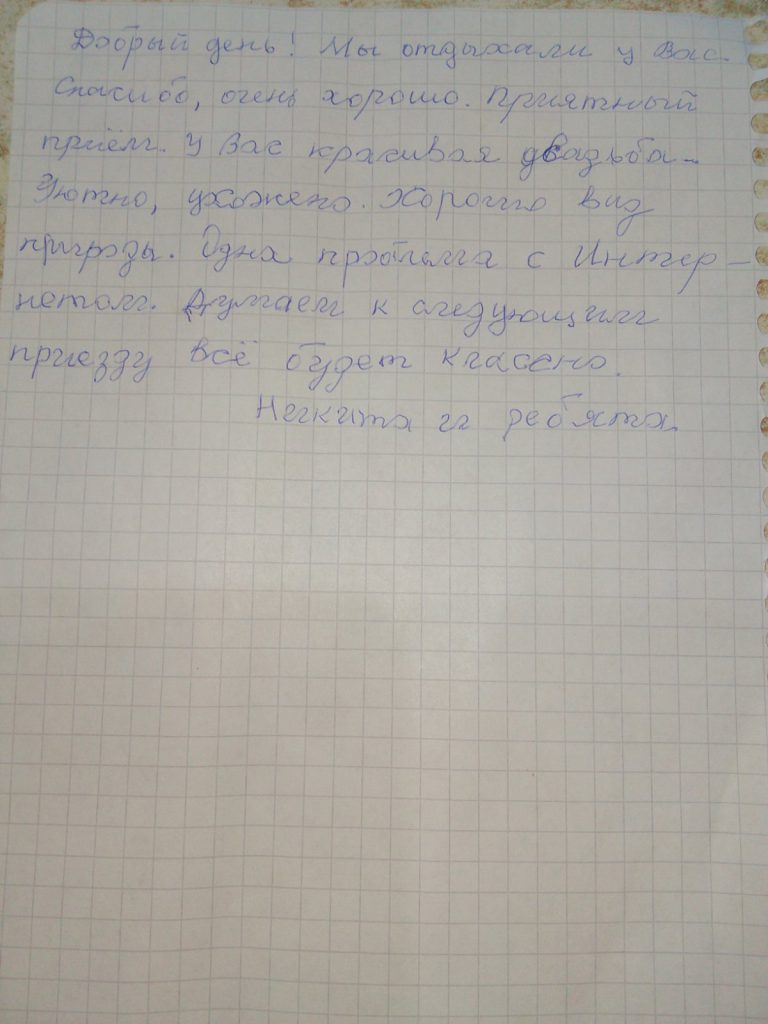 Добрый день! Мы отдыхали у Вас.
Спасибо, очень хорошо. Приятный
приём. У Вас красивая
Уютно, ухожено. Хорошо вид
природы. Одна проблема с Интер-
нетом. Думаем к следующим
приезду всё будет классно.
Никита и ребята.